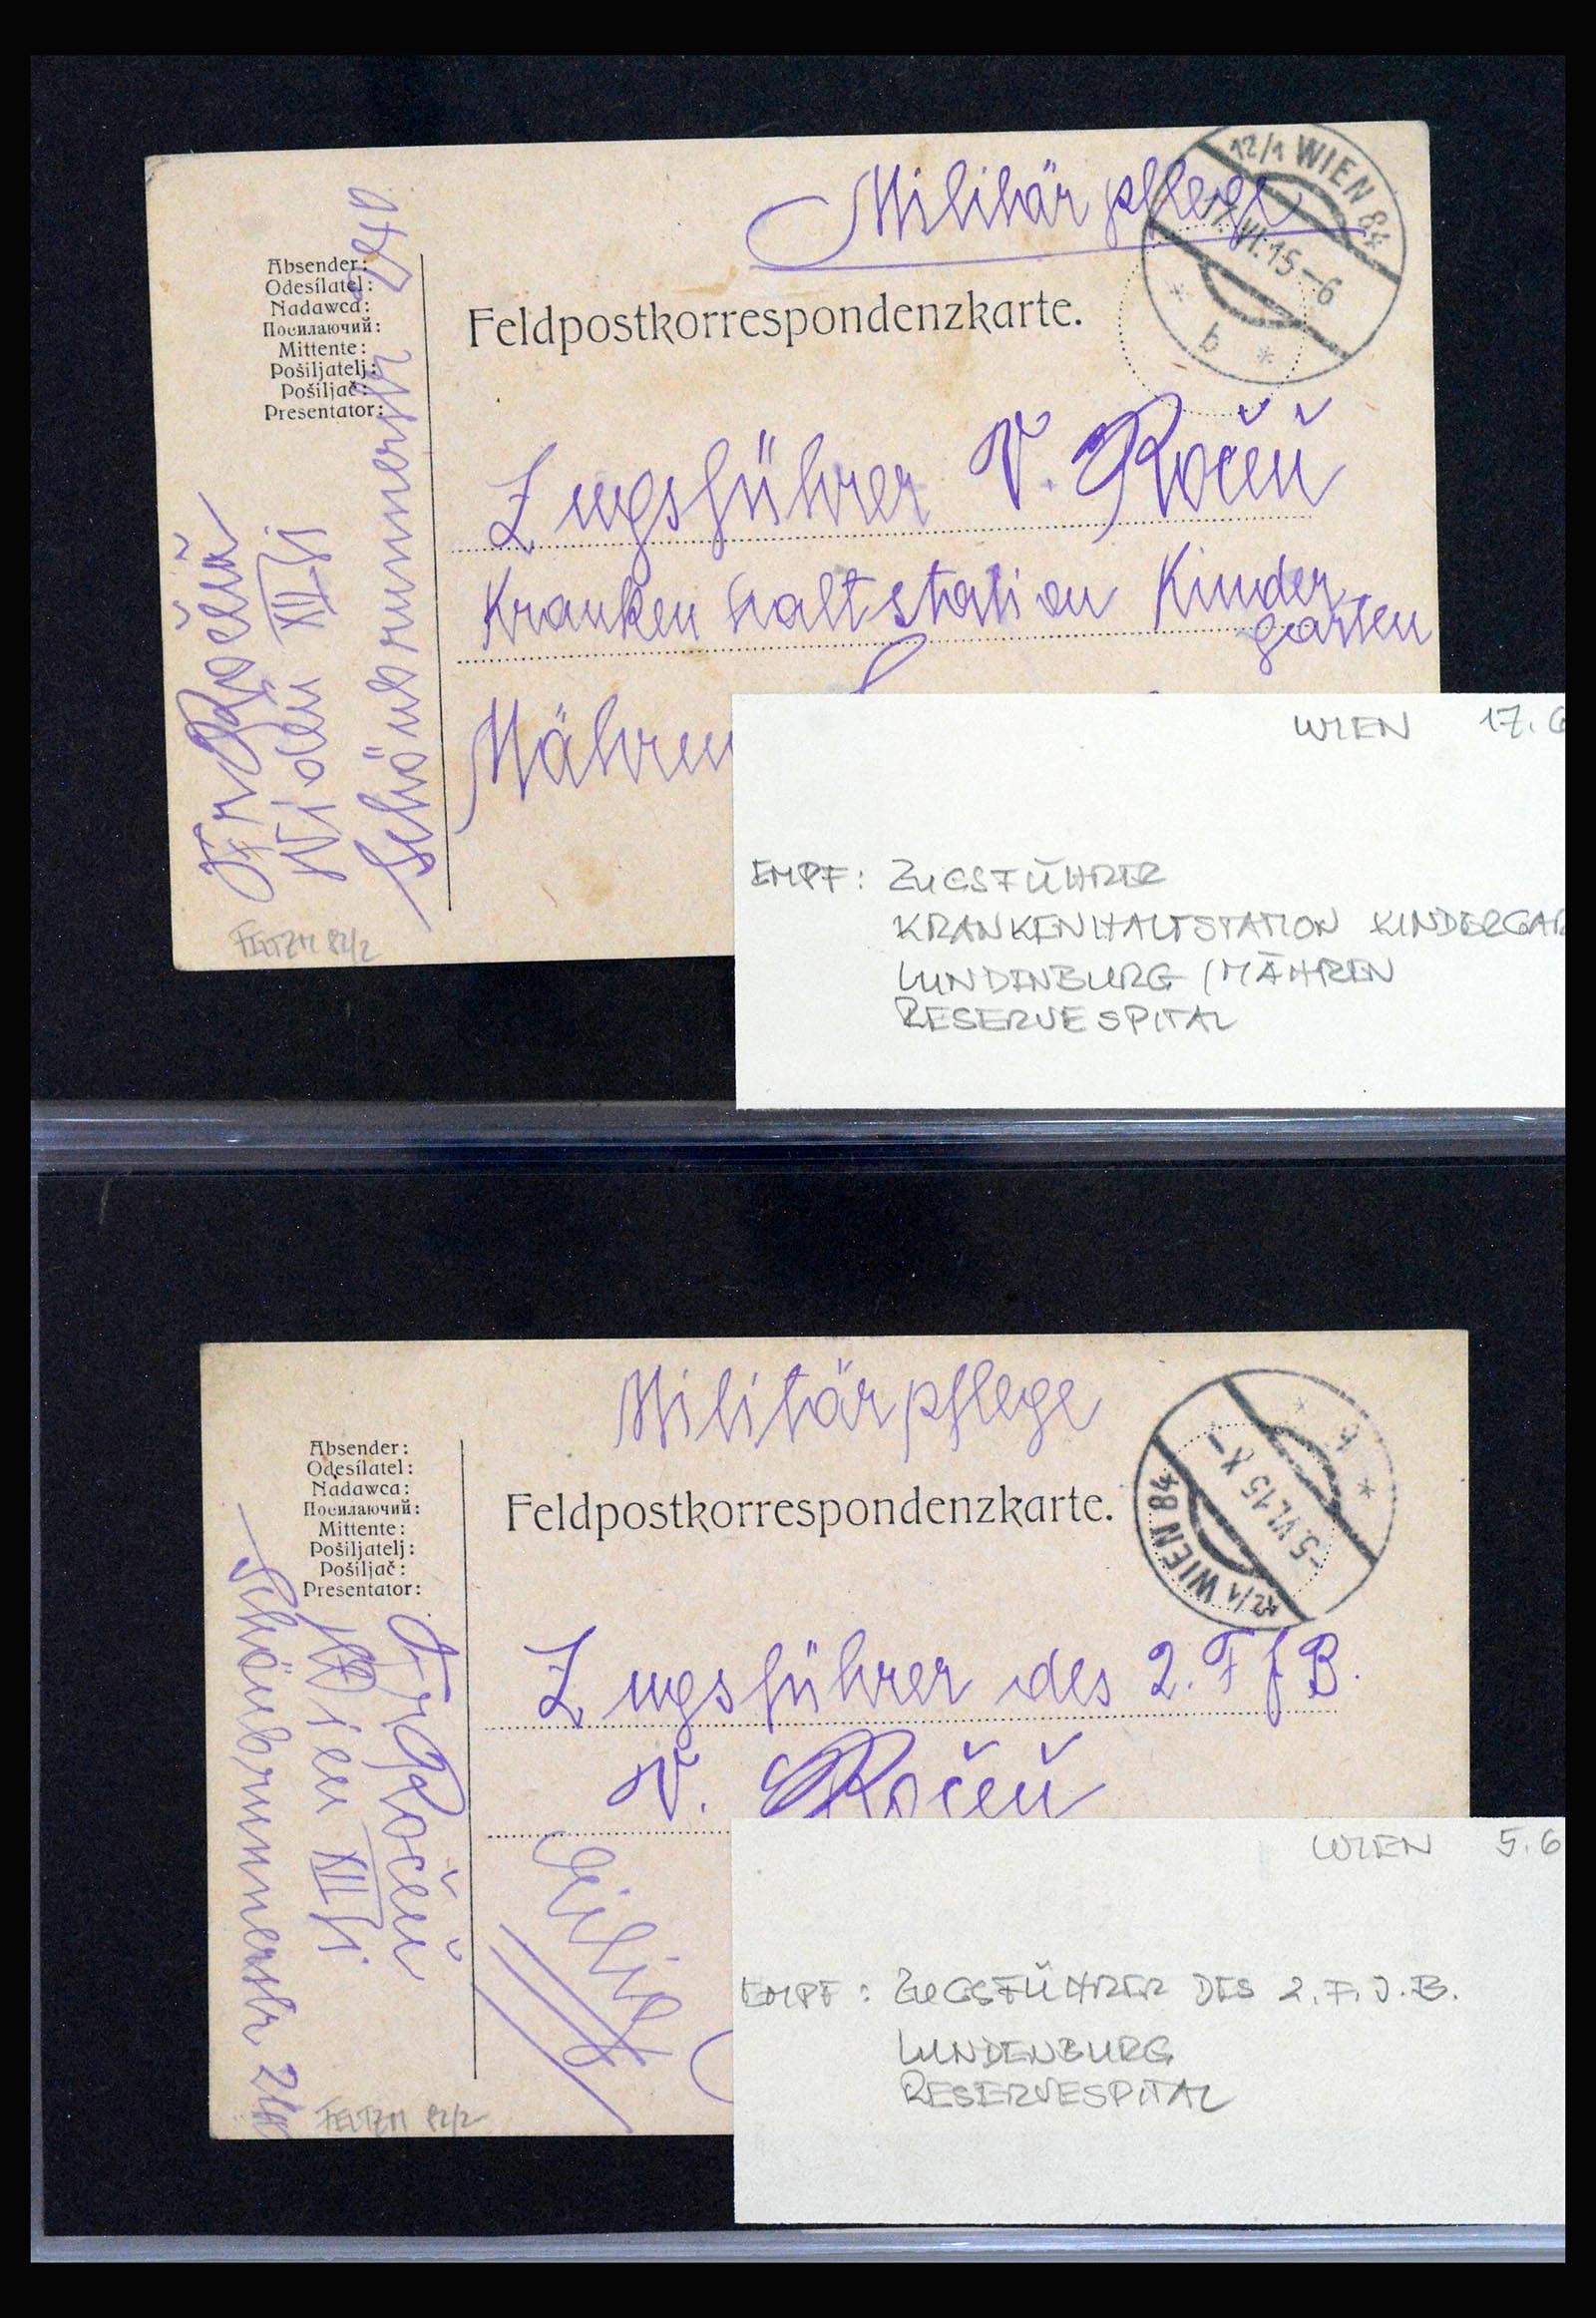 Militärpflege
12/1 WIEN 84
17.VI.15-6
* b *
Absender:
Odesílatel:
Nadawca:
Посилаючий:
Mittente:
Pošiljatelj:
Pošiljač:
Presentator:
Feldpostkorrespondenzkarte.
Zugsführer V. Ročeň
Krankenhaltstation Kinder
garten
Mähren
Fr Ročeň
Wien XII/1
Schönbrunnerstr 240
FELTZM 82/2
WIEN 17.6
EMPF: ZUGSFÜHRER
KRANKENHALTSTATION KINDERGAR
LUNDENBURG / MÄHREN
RESERVESPITAL
Militärpflege
12/1 WIEN 84
-5.VI.15 X-
Absender:
Odesílatel:
Nadawca:
Посилаючий:
Mittente:
Pošiljatelj:
Pošiljač:
Presentator:
Feldpostkorrespondenzkarte.
Zugsführer des 2. F J B.
V. Ročeň
Fr Ročeň
Wien XII/1
Schönbrunnerstr 240
FELTZM 82/2
WIEN 5.6
EMPF: ZUGSFÜHRER DES 2.F.J.B.
LUNDENBURG
RESERVESPITAL